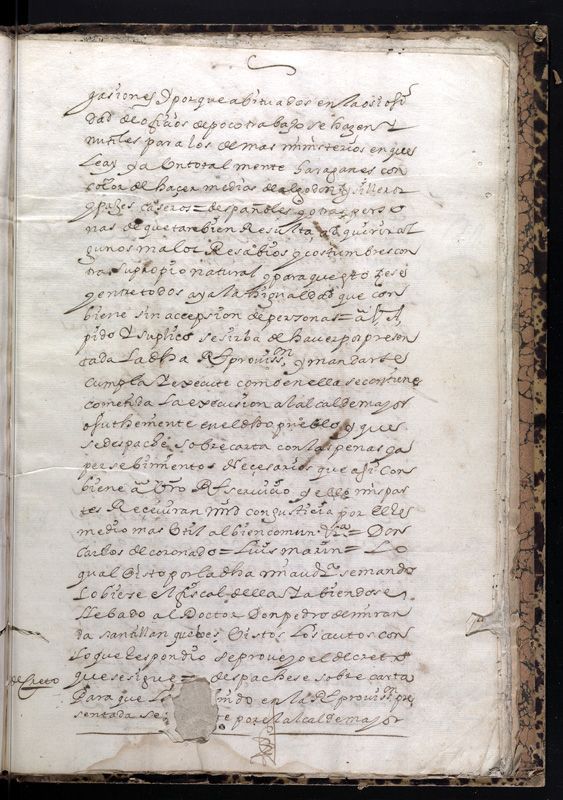 gasiones y porque abituados en la osiosi
dad de ofiçios de poco trabajo se hazen
ynutiles para los demas ministerios en que
sean y a lo total mente haraganes con
color de haçer medias de algodon y silleros
y pajes caseros = de españoles y otras perso
nas de que tanbien Resulta, adquirir al
gunos malos Resabios y costumbres con
tra su propio natural y para que esto çese
y entre todos aya la higualdad que con
biene sin accepsion de personas = a V. A.
pido y suplico se sirba de haver por presen
tada La dha Rl provissn y mandar se
cumpla y execute como en ella se contiene
cometida La execusion al alcalde mayor
o su theniente en el dho pueblo y que
se despache sobrecarta con las penas y a
persebimientos Necesarios que asi con
biene a Vro Rl serviçio y ellos mis par
tes Receuiran mrd con justicia por el Res
medio mas Util al bien comun = Don
Carlos de coronado = Luis marin = Lo
qual Visto por la dha mi audª se mando
Lo biese el fiscal della y abiendose
Llebado al Doctor Don pedro de miran
da santillan que bees Vistos Los autos con
Lo que Respondio se proveyo el decreto
decreto
que se sigue = despachese sobre carta
Para que mdo en la Rl provissn pre
sentada se por el alcalde mayor